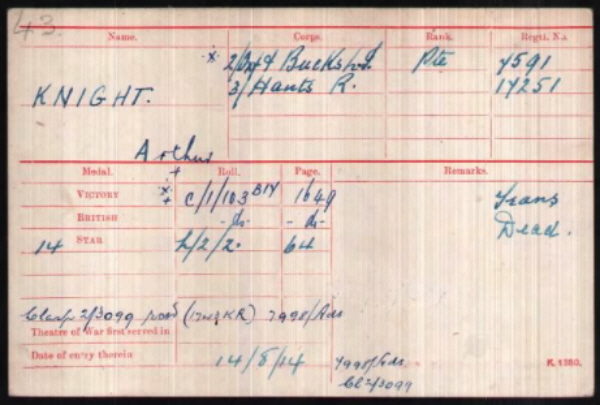 43.
Name. Corps. Rank. Regtl. No.
x 2/Ox & Bucks L.I. Pte 7591
KNIGHT. 3/Hants R. 17251
Arthur
Medal. Roll. Page. Remarks.
VICTORY C/1/103 B14 1649 Trans
BRITISH - do - - do - Dead.
14 STAR 64
Clasp 2/3099 (KR) 7998/Adt
Theatre of War first served in
Date of entry therein 14/8/14 7998/Adt
Cl 2/3099
K. 1380.